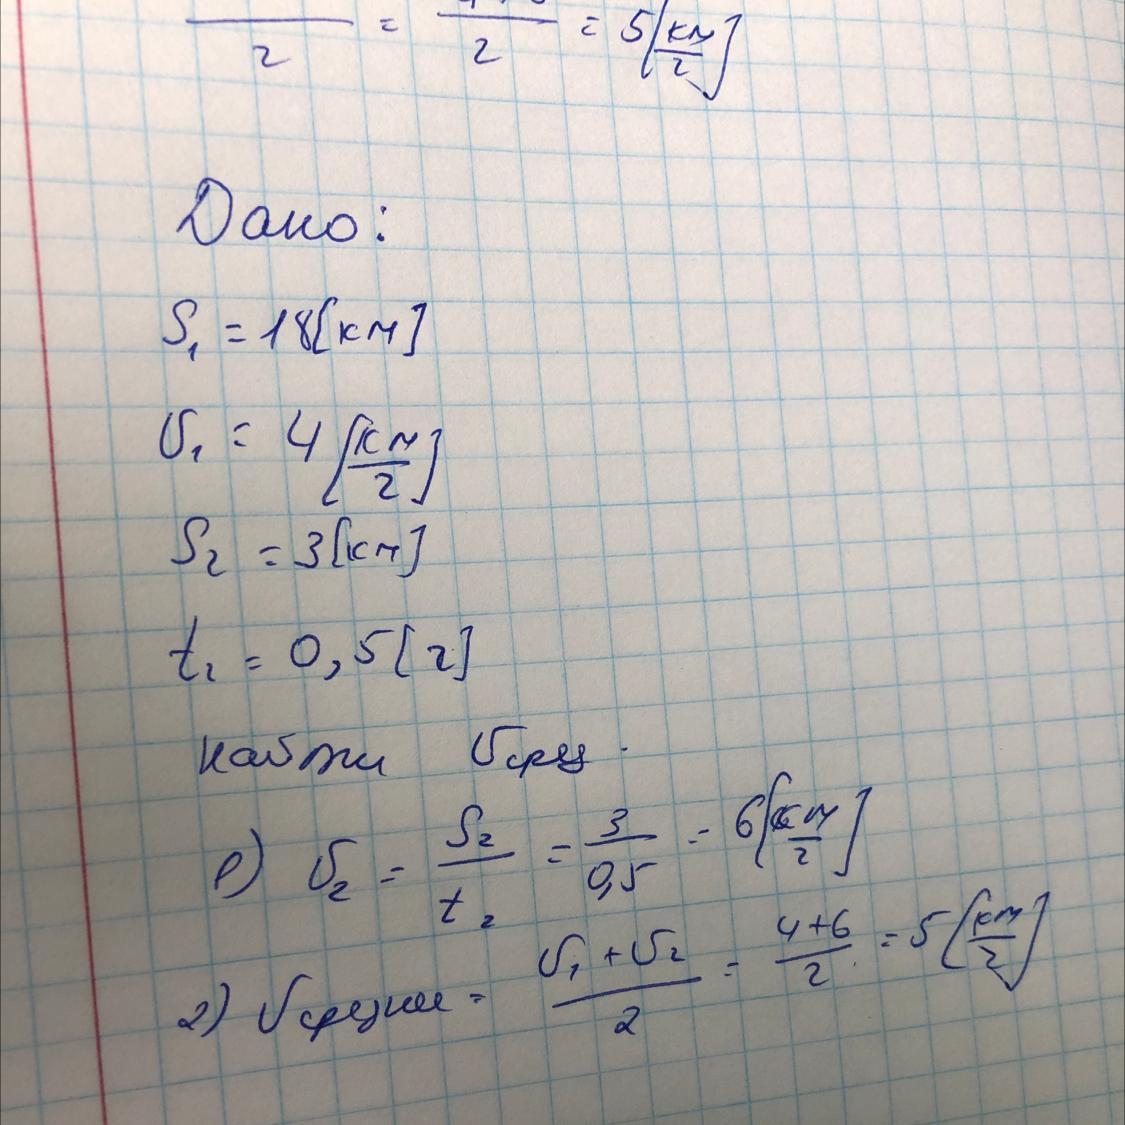 2 = 2 = 5 [км/г]
Дано:
S₁ = 18 [км]
υ₁ = 4 [км/г]
S₂ = 3 [км]
t₂ = 0,5 [г]
найти υсред.
1) υ₂ = S₂/t₂ = 3/0,5 = 6 [км/г]
2) υсредняя = (υ₁ + υ₂)/2 = (4+6)/2 = 5 [км/г]